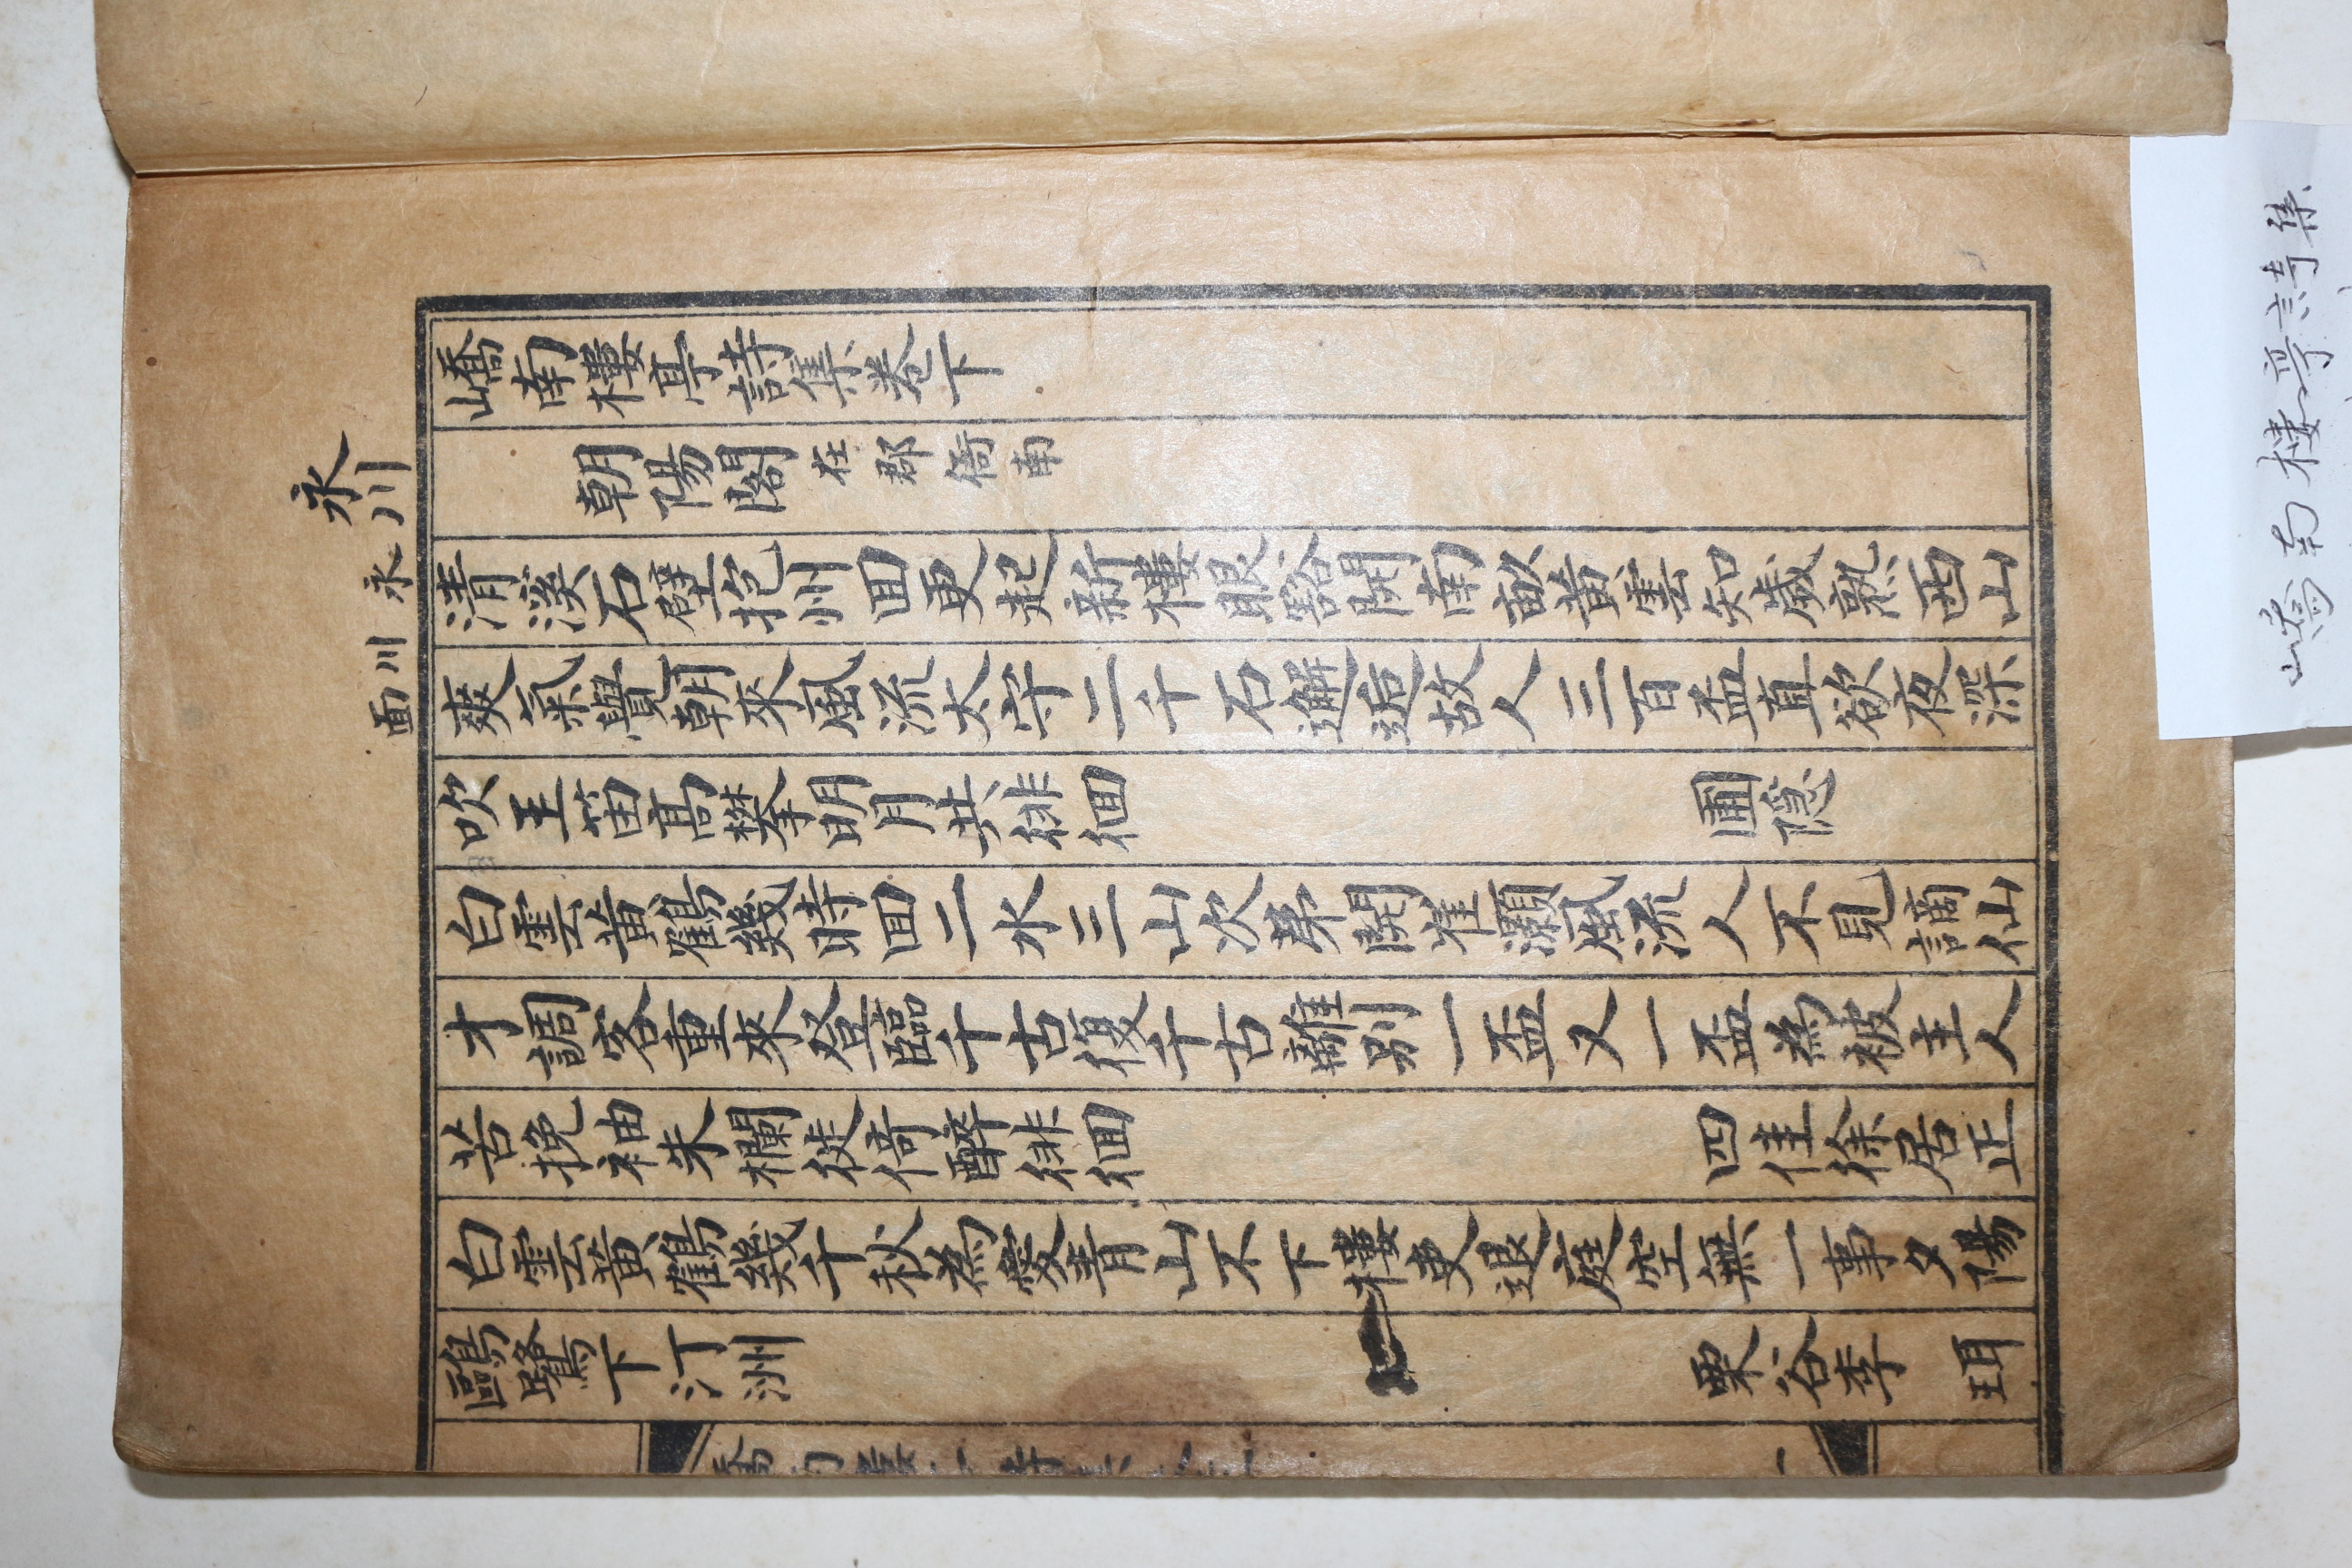 永川
永川面
嶠南樓亭詩集卷下
朝陽閣 在郡衙南
清溪石壁抱州回更起新樓眼豁開南畝黃雲知歲熟西山
爽氣覺朝來風流太守二千石邂逅故人三百盃直欲夜深
吹玉笛高攀明月共徘徊 圃隱
白雲黃鶴幾時回二水三山次苐開崔灝風流人不見謫仙
才調客重來登臨千古復千古離別一盃又一盃為被主人
苦挽袖朱欄徙倚醉徘徊 四佳徐居正
白雲黃鶴幾千秋為愛青山不下樓吏退庭空無一事夕陽
鷗鷺下汀洲 栗谷李珥
嶠南樓亭詩集